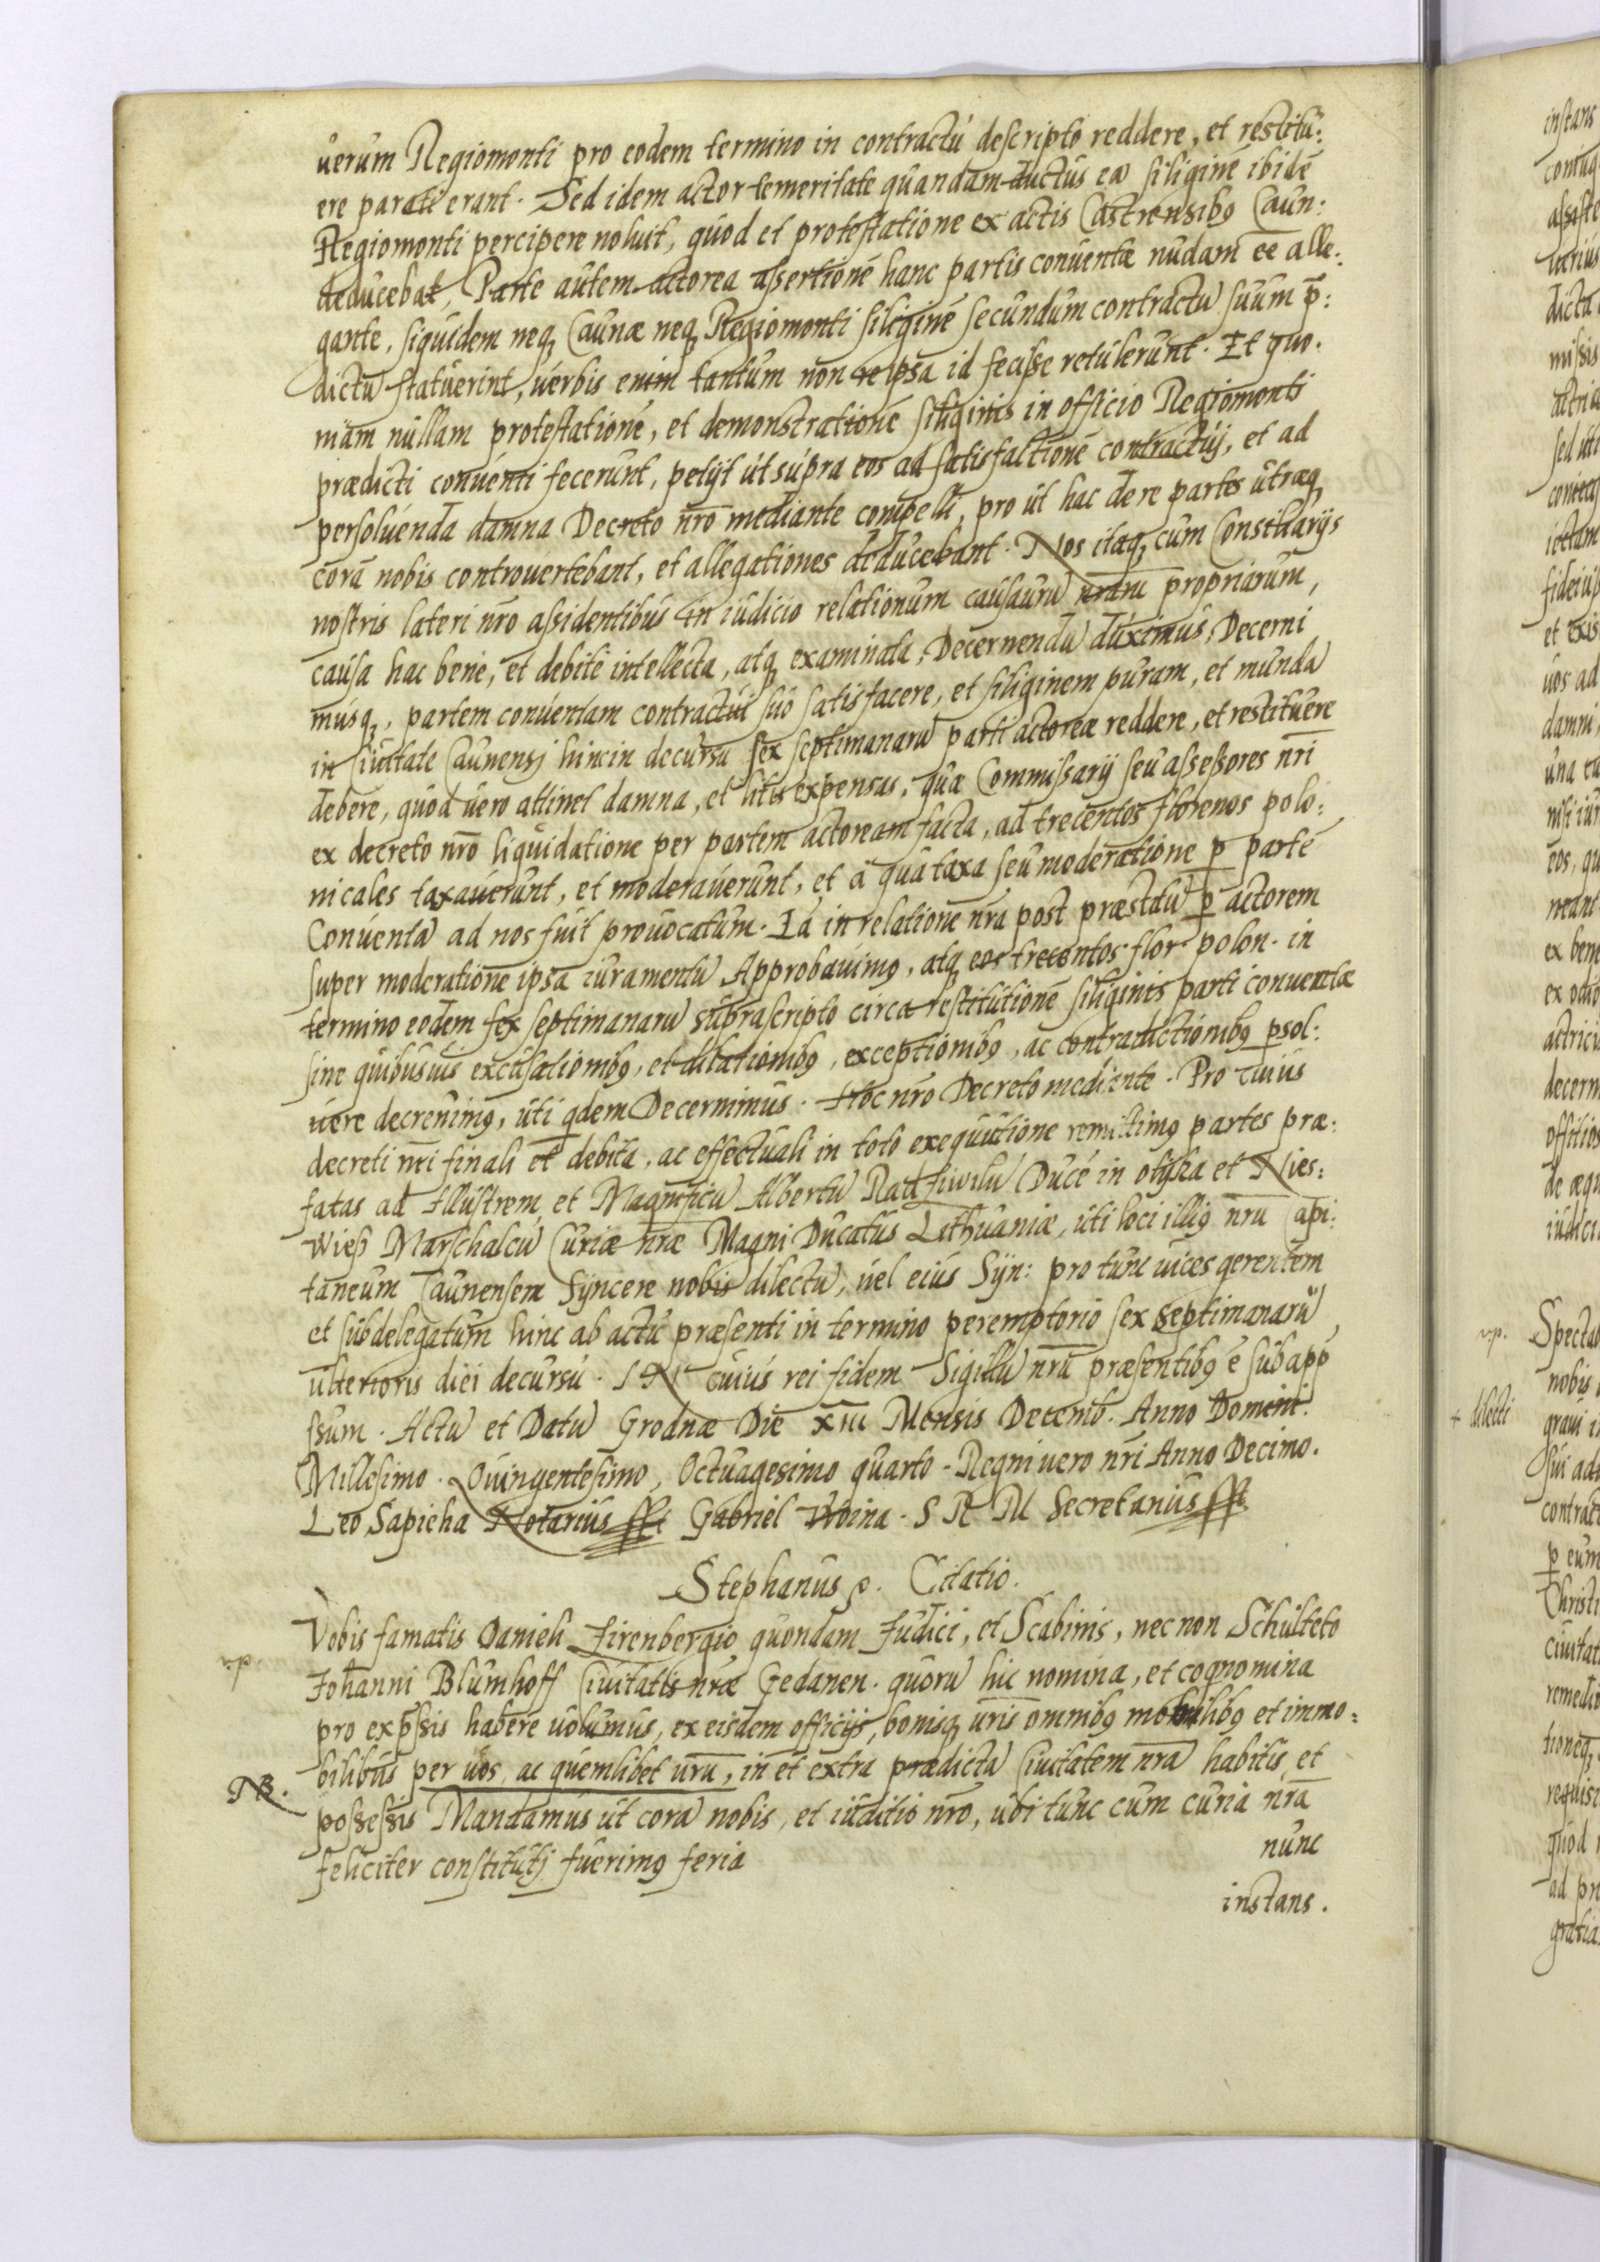 uerum Regiomonti pro eodem termino in contractu descripto reddere, et restitu:
ere parati erant. Sed idem actor temeritate quandam ductus ea siliginē ibidē
Regiomonti percipere noluit, quod et protestatione ex actis Castrensibq Caun:
deducebat, Parte autem actorea assertionē hanc partis conuentæ nudam ēe alle:
gante, siquidem neq Caunæ neq Regiomonti siliginē secundum contractū suum p̄:
dictū statuerint, uerbis enim tantum non reipsa id fecisse retulerunt. Et quo:
niam nullam protestationē, et demonstrationē siliginis in officio Regiomonti
prædicti conuenti fecerunt, petijt ut supra eos ad satisfactionē contractuj, et ad
persoluenda damna Decreto nr̄o mediante compelli, pro ut hac de re partes utræq
corā nobis controuertebant, et allegationes deducebant. Nos itaq cum Consiliarijs
nostris lateri nr̄o assidentibus in iudicio relationum causarū nr̄arū propriarum,
causa hac bene, et debite intellecta, atq examinata, Decernendū duximus, Decerni
musq, partem conuentam contractui suo satisfacere, et siliginem puram, et mundā
in Ciuitate Caunensj hinc in decursu sex septimanarū parti actoreæ reddere, et restituere
debere, quod uero attinet damna, et litis expensas, quæ Commissarij seu assessores nr̄i
ex decreto nr̄o liquidatione per partem actoream facta, ad trecentos florenos polo:
nicales taxauerunt, et moderauerunt, et a qua taxa seu moderatione p partē
Conuentā ad nos fuit prouocatum. Ea in relatione nr̄a post præstitū p actorem
super moderatione ipsa iuramentū Approbauimq, atq eos trecentos flor. polon. in
termino eodem sex septimanarū suprascripto circa restitutionē siliginis parti conuentæ
sine quibusuis excusationibq, et dilationibq, exceptionibq, ac contradictionibq psol:
uere decreuimq, uti qdem Decernimus. Hoc nr̄o Decreto mediante. Pro cuius
decreti nr̄i finali et debita, ac effectuali in toto exequutione remittimq partes præ:
fatas ad Illustrem et Magnificū Albertū Radziwilū Ducē in olyka et Nies:
wiesz Marschalcū Curiæ nr̄æ Magni Ducatus Lithuaniæ, uti loci illiq nr̄ū Capi:
taneum Caunensem Syncere nobis dilectū, uel eius Syn: pro tunc uices gerentem
et subdelegatum hinc ab actu præsenti in termino peremptorio sex septimanarū
ulterioris diei decursu. IN cuius rei fidem Sigillū nr̄ū præsentibq ē subapp̄
ssum. Actū et Datū Grodnæ Die XIII Mensis Decemb. Anno Domini.
Millesimo. Quingentesimo, Octuagesimo quarto. Regni uero nr̄i Anno Decimo.
Leo Sapieha Notarius sst Gabriel Woina. S R M Secretarius sst
Stephanus p. Citatio.
Vobis famatis Danieli Zirenbergio quondam Judici, et Scabinis, nec non Schulteto
Johanni Blumhoff Ciuitatis nr̄æ Gedanen. quorū hic nomina, et cognomina
pro exp̄ssis habere uolumus, ex eisdem officijs, bonisq ur̄is omnibq mobilibq et immo:
bilibus per uos, ac quemlibet ur̄ū, in et extra prædictā Ciuitatem nr̄ā habitis, et
NB.
possessis Mandamus ut corā nobis, et iuditio nr̄o, ubi tunc cum curia nr̄a
feliciter constitutj fuerimq feria nunc
instans.